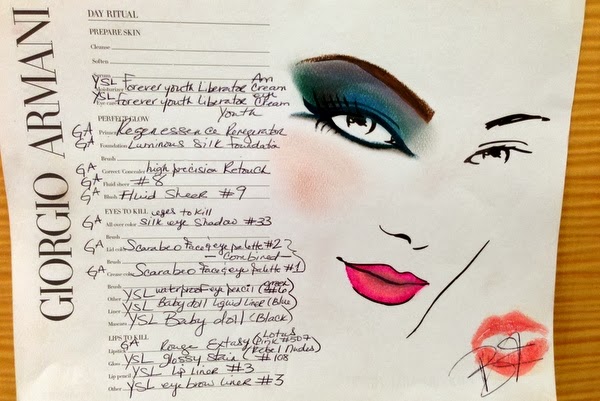 GIORGIO ARMANI
DAY RITUAL
PREPARE SKIN
Cleanse
Soften
Serum
Moisturizer YSL Forever youth Liberator Am Cream
Eye care YSL Forever youth Liberator eye Cream
Youth
PERFECT GLOW
GA Primer Regenessence Regenerator
GA Foundation Luminous Silk Foundation
Brush
GA Correct/Conceal high precision Retouch
GA Fluid sheer #8
GA Blush Fluid Sheer #9
Brush
EYES TO KILL eyes to Kill
GA All over color Silk eye Shadow #33
GA Lid color Scarabeo Face & eye palette #2
- Combined -
GA Crease color Scarabeo Face & eye palette #1
Brush
Other YSL waterproof eye pencil (green #6)
Liner YSL Baby doll Liquid Liner (Blue)
Mascara YSL Baby doll (Black)
LIPS TO KILL
GA Lipstick Rouge Extasy (Lotus Pink #507)
Gloss YSL glossy stain (Rebel Nudes) #108
Lip pencil YSL Lip Liner #3
Other YSL eye brow liner #3